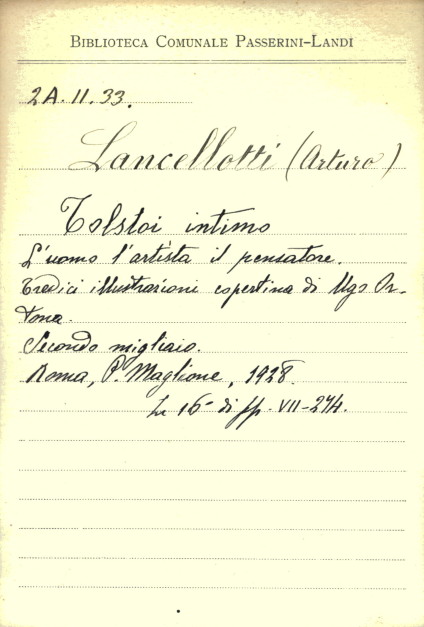 BIBLIOTECA COMUNALE PASSERINI-LANDI
2A.II.33.
Lancellotti (Arturo)
Tolstoi intimo
L'uomo l'artista il pensatore.
Tredici illustrazioni copertina di Ugo Or-
tona.
Secondo migliaio.
Roma, P. Maglione, 1928.
In 16° di pp. VII-274.